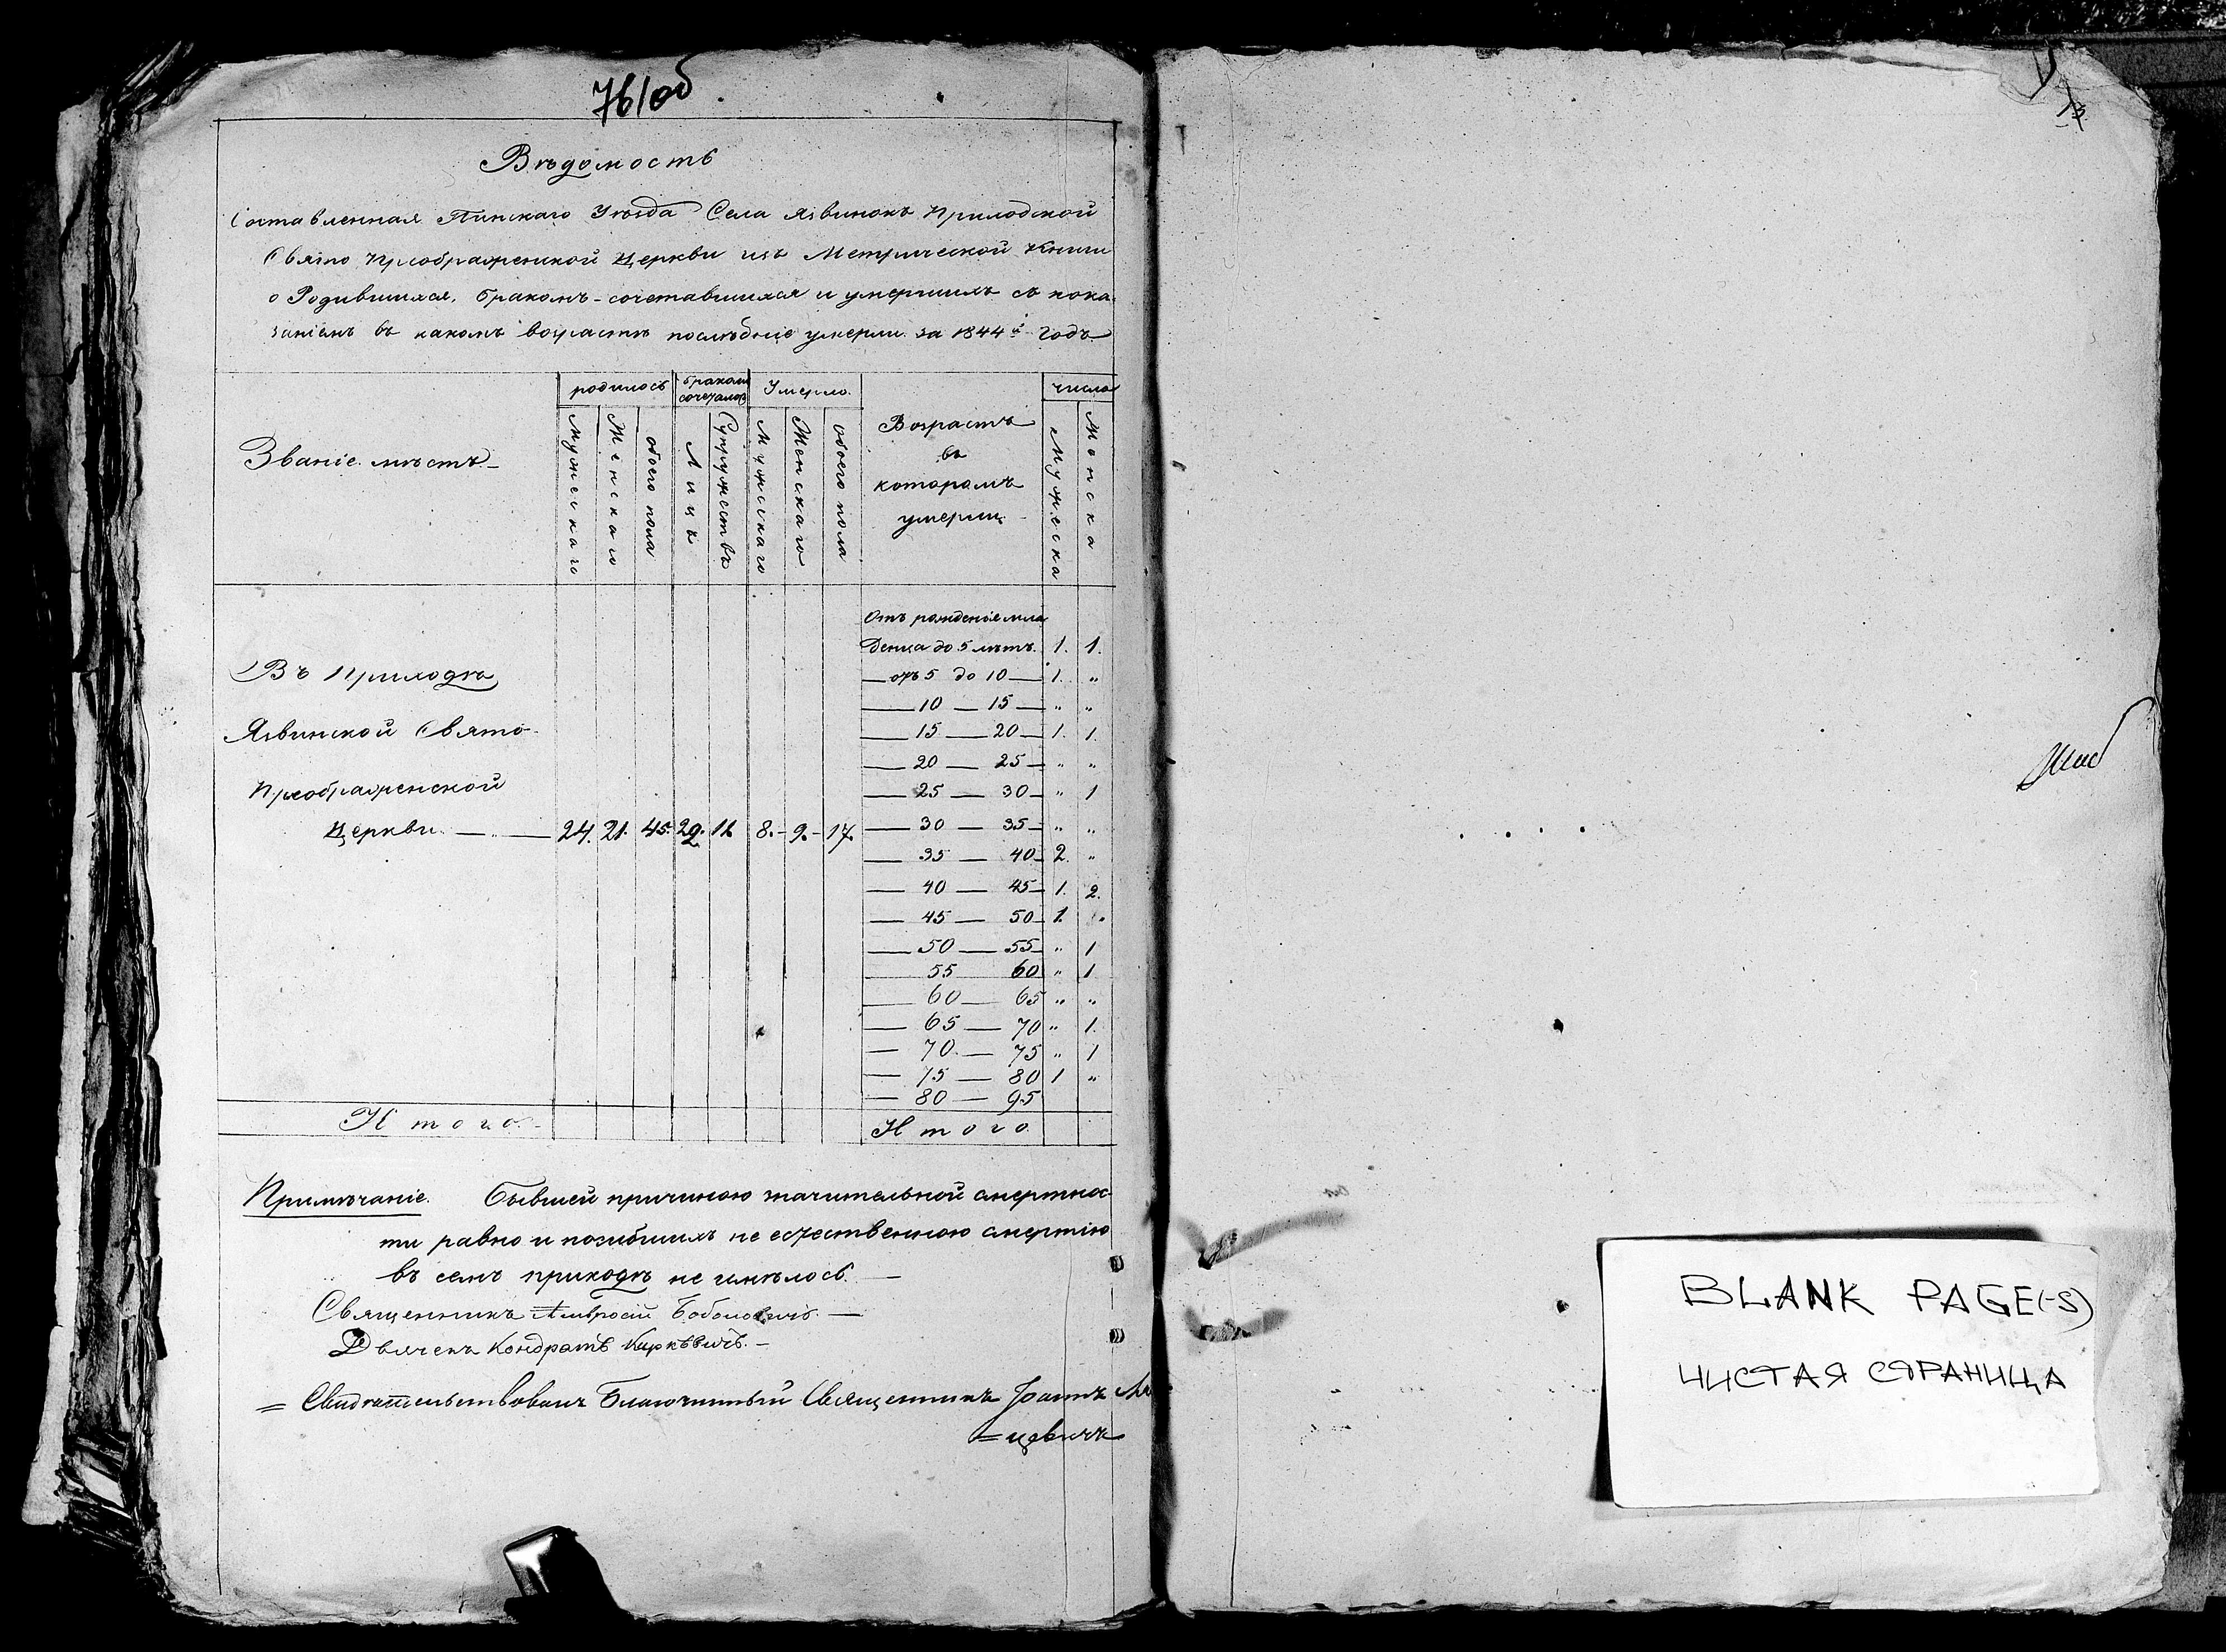 761об
Вѣдомость
Составленная Пинскаго Уѣзда Села Язвинокъ Приходской
Свято Преображенской Церкви изъ Метрической Книги
о Родившихся, бракомъ-сочетавшихся и умершихъ съ пока
заніемъ въ какомъ возрастѣ послѣдніе умерли за 1844й годъ
Званіе мѣстъ родилось бракомъ сочеталось Умерло Возрастъ въ которомъ умерли число
Мужескаго Женскаго обоего пола Лицъ Супружествъ Мужескаго Женскаго обоего пола Мужеска Женска
Отъ рожденіе мла
денца до 5 лѣтъ. 1. 1.
отъ 5 до 10 1. "
10 — 15 " "
15 — 20 1. 1.
20 — 25 " "
25 — 30 " 1
30 — 35 " "
35 — 40 2. "
40 — 45 1. 2.
45 — 50 1.
50 — 55 " 1
55 60 " 1
60 — 65 " "
65 — 70 " 1.
70 — 75 " 1
75 — 80 1 "
80 — 95
Въ Приходѣ
Язвинской Свято-
Преображенской
Церкви. — 24. 21. 45. 8. 9. 17.
Итого Итого
Примѣчаніе. Бывшей причиною значительной смертнос
ти равно и погибшихъ не естественною смертію
въ семъ приходѣ не имѣлось. —
Священникъ Амвросій —
Дьячекъ Кондратъ
= Свидѣтельствовалъ Благочинный Священникъ Іоаннъ
= цевичъ
BLANK PAGE(-S)
ЧИСТАЯ СТРАНИЦА